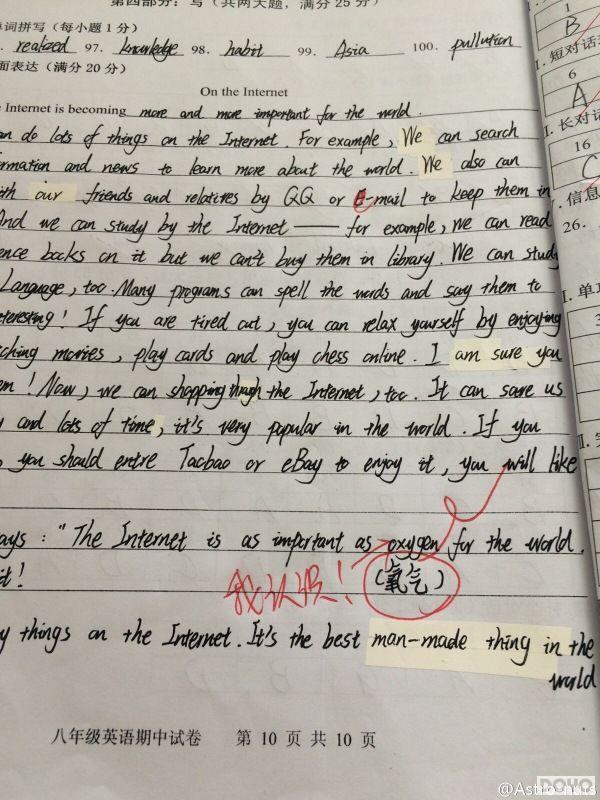 第四部分：写（共两大题，满分25分）
单词拼写（每小题1分）
realized 97. knowledge 98. habit 99. Asia 100. pollution
面表达（满分20分）
On the Internet
e Internet is becoming more and more important for the world.
an do lots of things on the Internet. For example, We can search
ormation and news to learn more about the world. We also can
ith our friends and relatives by QQ or E-mail to keep them in
And we can study by the Internet —— for example, we can read
ence books on it but we can't buy them in library. We can study
Language, too. Many programs can spell the words and say them to
teresting! If you are tired out, you can relax yourself by enjoying
tching movies, play cards and play chess online. I am sure you
em! Now, we can shopping through the Internet, too. It can save us
y and lots of time, it's very popular in the world. If you
, you should entre Taobao or eBay to enjoy it, you will like
ays: "The Internet is as important as oxygen for the world.
it!
(氧气)
我认识！
y things on the Internet. It's the best man-made thing in the
world
八年级英语期中试卷 第 10 页 共 10 页
1
B
I. 短对话
6
A
I. 长对话
16
C
. 信息
26.
I. 单项
3
II.
@Astro-nuts
DOHO